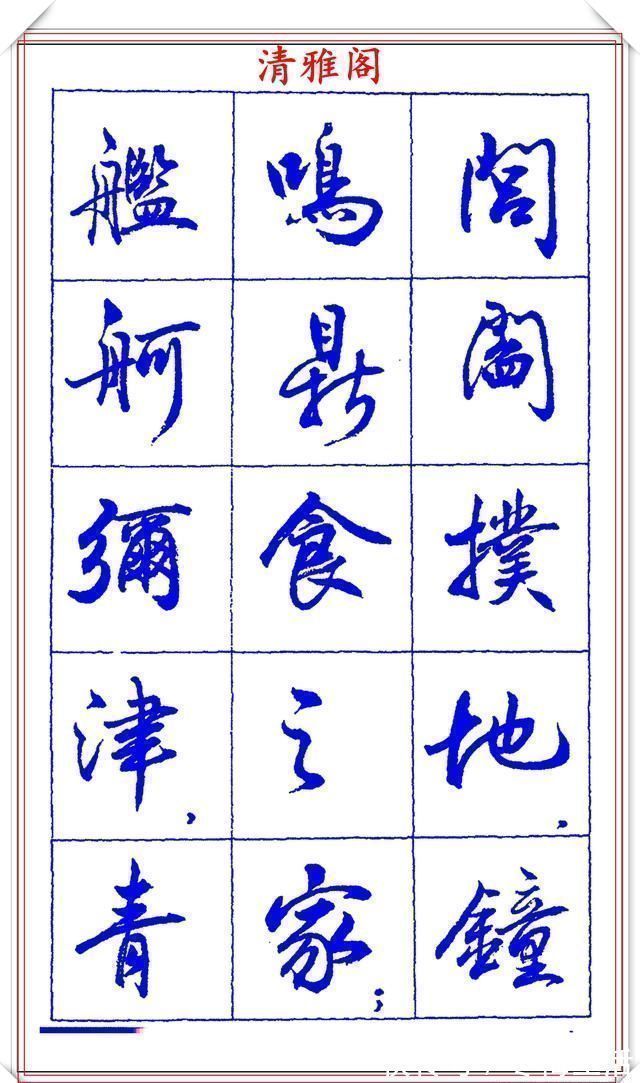 清雅阁
閭閻撲地，鐘
鳴鼎食之家；
艦舸彌津，青